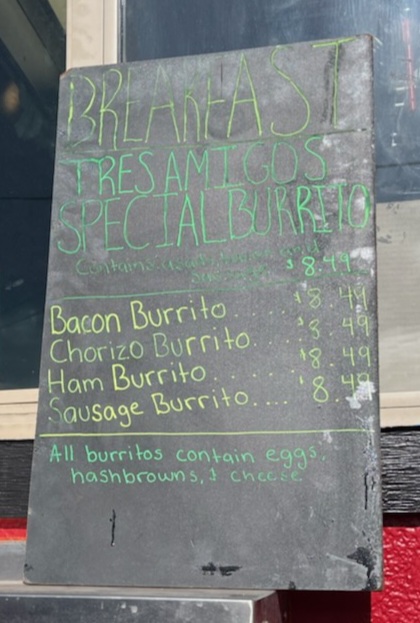 BREAKFAST
TRES AMIGOS
SPECIAL BURRITO
Contains
$8.49
Bacon Burrito .... $8.49
Chorizo Burrito. .. $8.49
Ham Burrito ..... $8.49
Sausage Burrito.... 8.49
All burritos contain eggs,
hashbrowns, & cheese